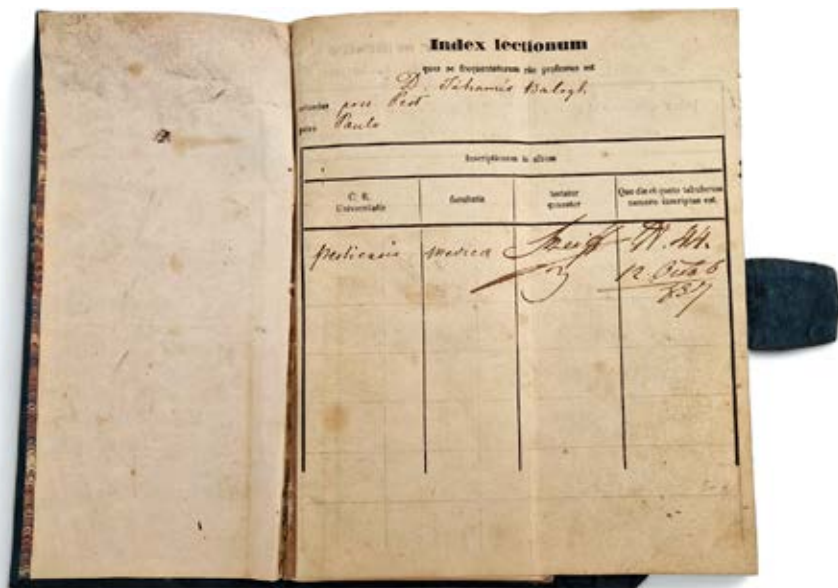 Index lectionum
quas se frequentaturum rite professus est
D. Tihamér Balogh
oriundus prov Pest
patre Paulo
Inscriptionum in album
C. R. Universitatis
facultatis
testatur quaestor
Quo die et quoto tabularum numero inscriptus est.
pestiensis medica N. 44.
12 Octob
857